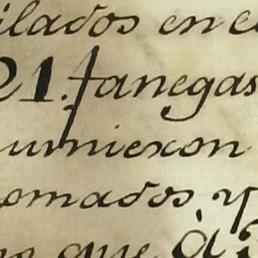 ilados en e
21. fanegas
umieron
omados y
que à